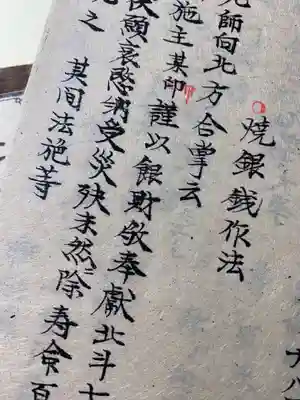 燒銀銭作法
師向北方合掌云
施主某印謹以銀財敬奉獻北斗七
願哀愍納受災殃未然除寿命百
之 其间法施等